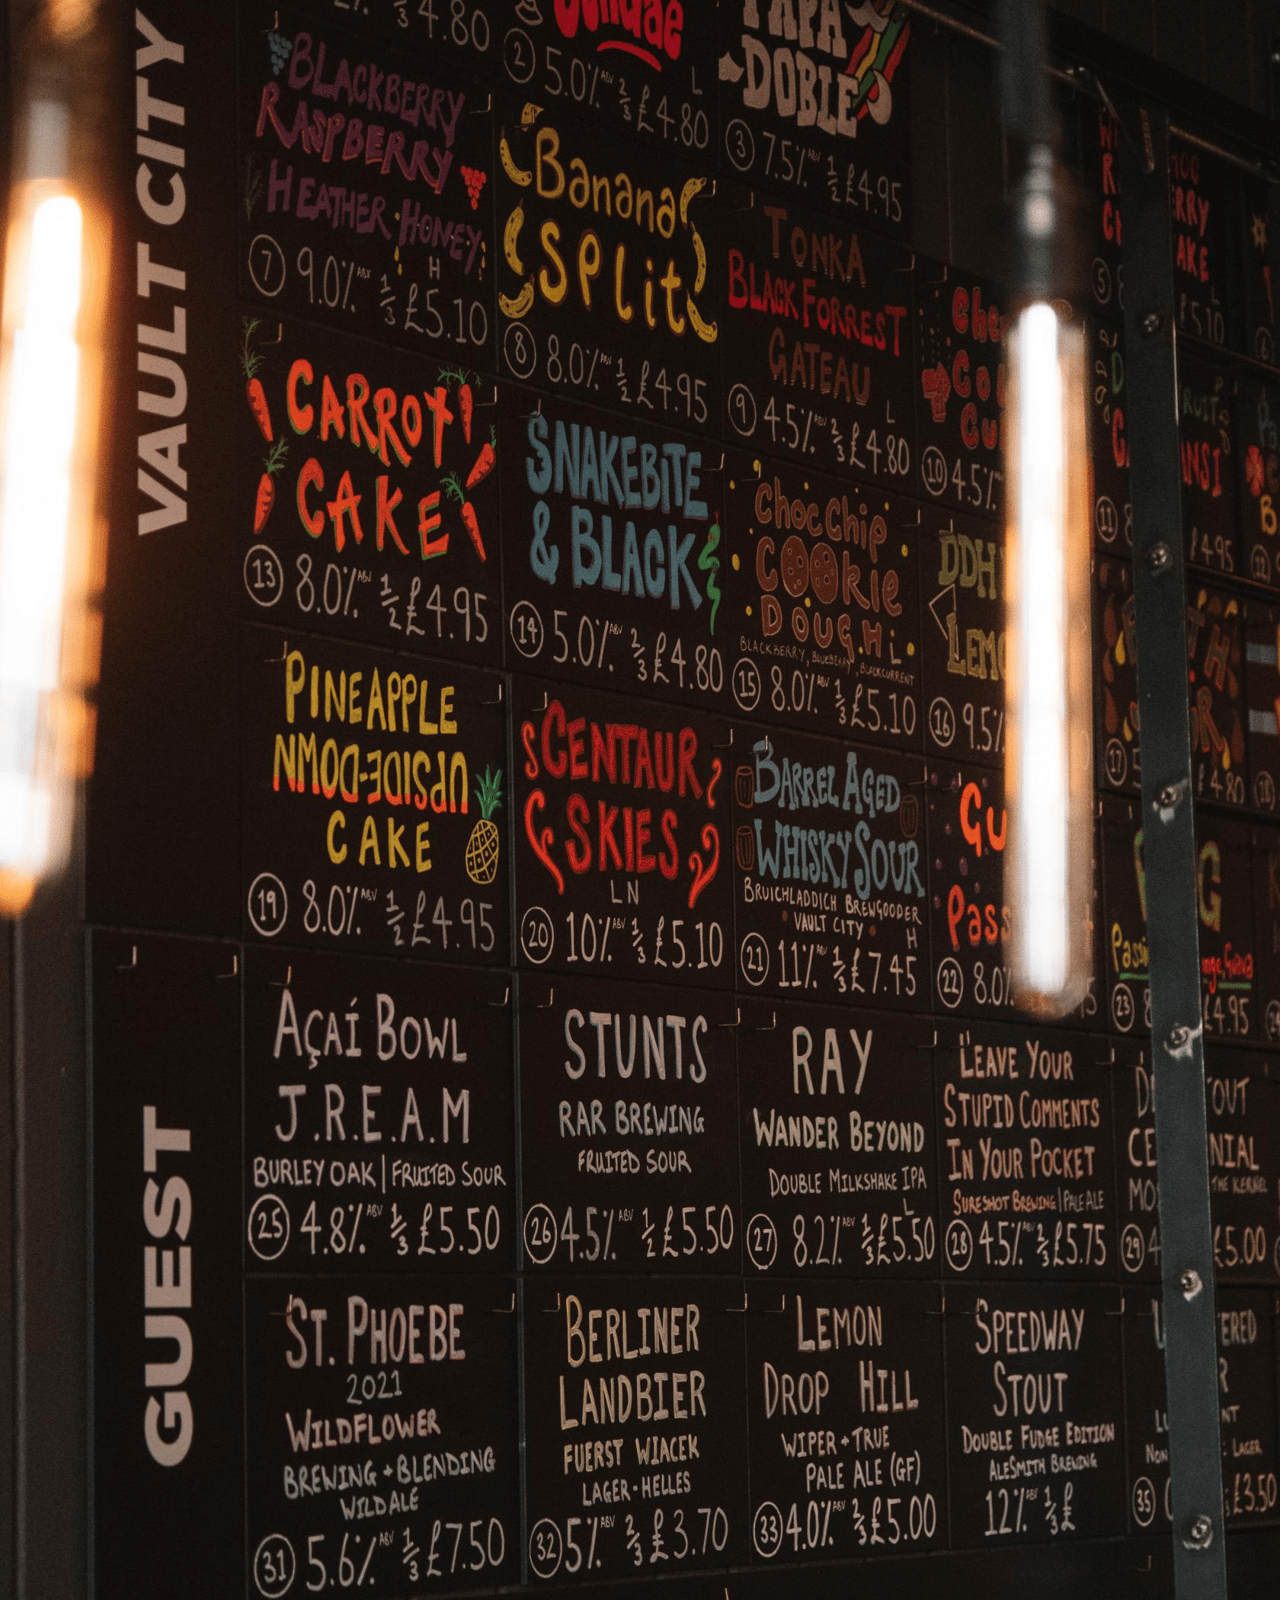 VAULT CITY
4.80
Sundae
2 5.0% ABV 2/3 £4.80
L
PAPA
DOBLE
3 7.5% ABV 1/2 £4.95
BLACKBERRY
RASPBERRY
HEATHER HONEY
H
7 9.0% ABV 1/3 £5.10
Banana
SPLit
8 8.0% ABV 1/2 £4.95
TONKA
BLACK FORREST
GATEAU
L
9 4.5% ABV 2/3 £4.80
10 4.5%
5
£5.10
11
CARROT
CAKE
13 8.0% ABV 1/2 £4.95
SNAKEBITE
& BLACK
14 5.0% ABV 2/3 £4.80
ChocChip
COOKie
DOUGH
L
BLACKBERRY, BLUEBERRY, BLACKCURRENT
15 8.0% ABV 1/3 £5.10
DDH
16 9.5%
17
PINEAPPLE
UPSIDE-DOWN
CAKE
19 8.0% ABV 1/2 £4.95
CENTAUR
SKIES
LN
20 10% ABV 1/3 £5.10
BARREL AGED
WHISKY SOUR
BRUICHLADDICH BREWGOODER
VAULT CITY
H
21 11% ABV 1/3 £7.45
22 8.0%
23
£4.95
GUEST
AÇAÍ BOWL
J.R.E.A.M
BURLEY OAK | FRUITED SOUR
25 4.8% ABV 1/3 £5.50
STUNTS
RAR BREWING
FRUITED SOUR
26 4.5% ABV 1/2 £5.50
RAY
WANDER BEYOND
DOUBLE MILKSHAKE IPA
L
27 8.2% ABV 1/3 £5.50
LEAVE YOUR
STUPID COMMENTS
IN YOUR POCKET
SURESHOT BREWING | PALE ALE
28 4.5% ABV 2/3 £5.75
THE KERNEL
29
£5.00
ST. PHOEBE
2021
WILDFLOWER
BREWING + BLENDING
WILD ALE
31 5.6% ABV 1/3 £7.50
BERLINER
LANDBIER
FUERST WIACEK
LAGER - HELLES
32 5% ABV 2/3 £3.70
LEMON
DROP HILL
WIPER + TRUE
PALE ALE (GF)
33 4.0% ABV 2/3 £5.00
SPEEDWAY
STOUT
DOUBLE FUDGE EDITION
ALESMITH BREWING
12% ABV 1/3 £
LAGER
35
£3.50